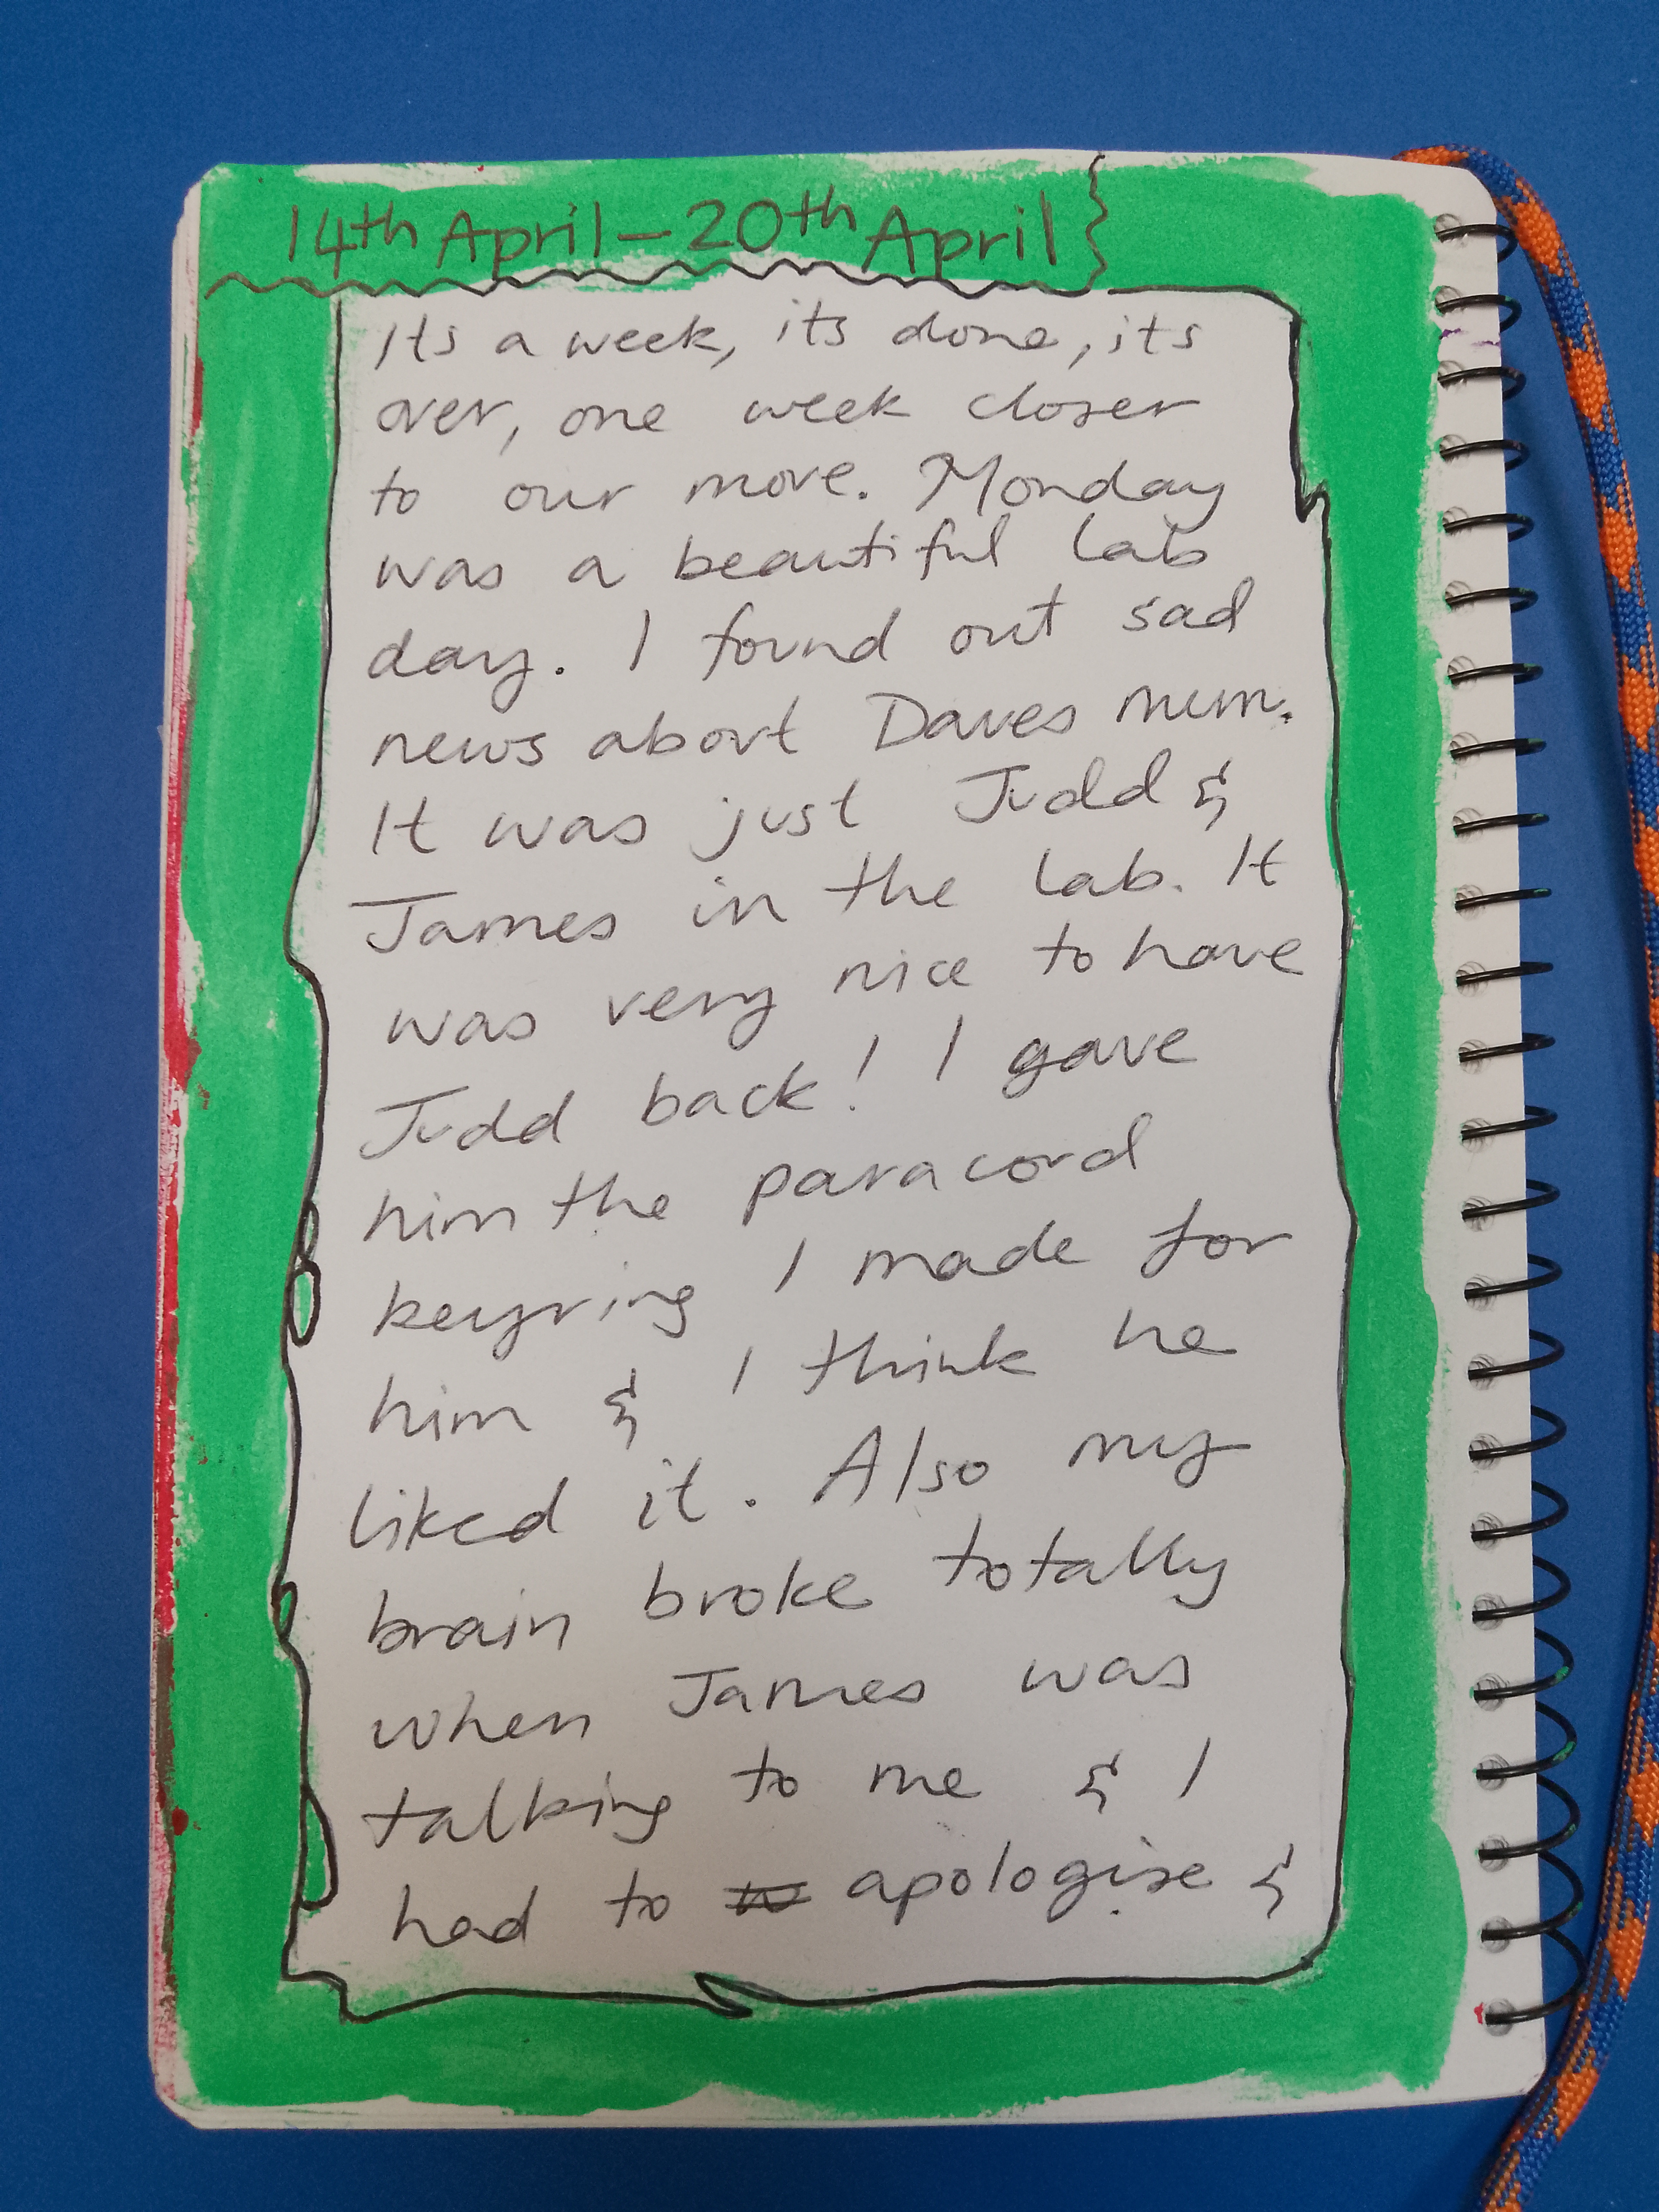 14th April – 20th April
Its a week, its done, its
over, one week closer
to our move. Monday
was a beautiful lab
day. I found out sad
news about Daves mum.
It was just Judd &
James in the lab. It
was very nice to have
Judd back! I gave
him the paracord
keyring I made for
him & I think he
liked it. Also my
brain broke totally
when James was
talking to me & I
had to apologise &